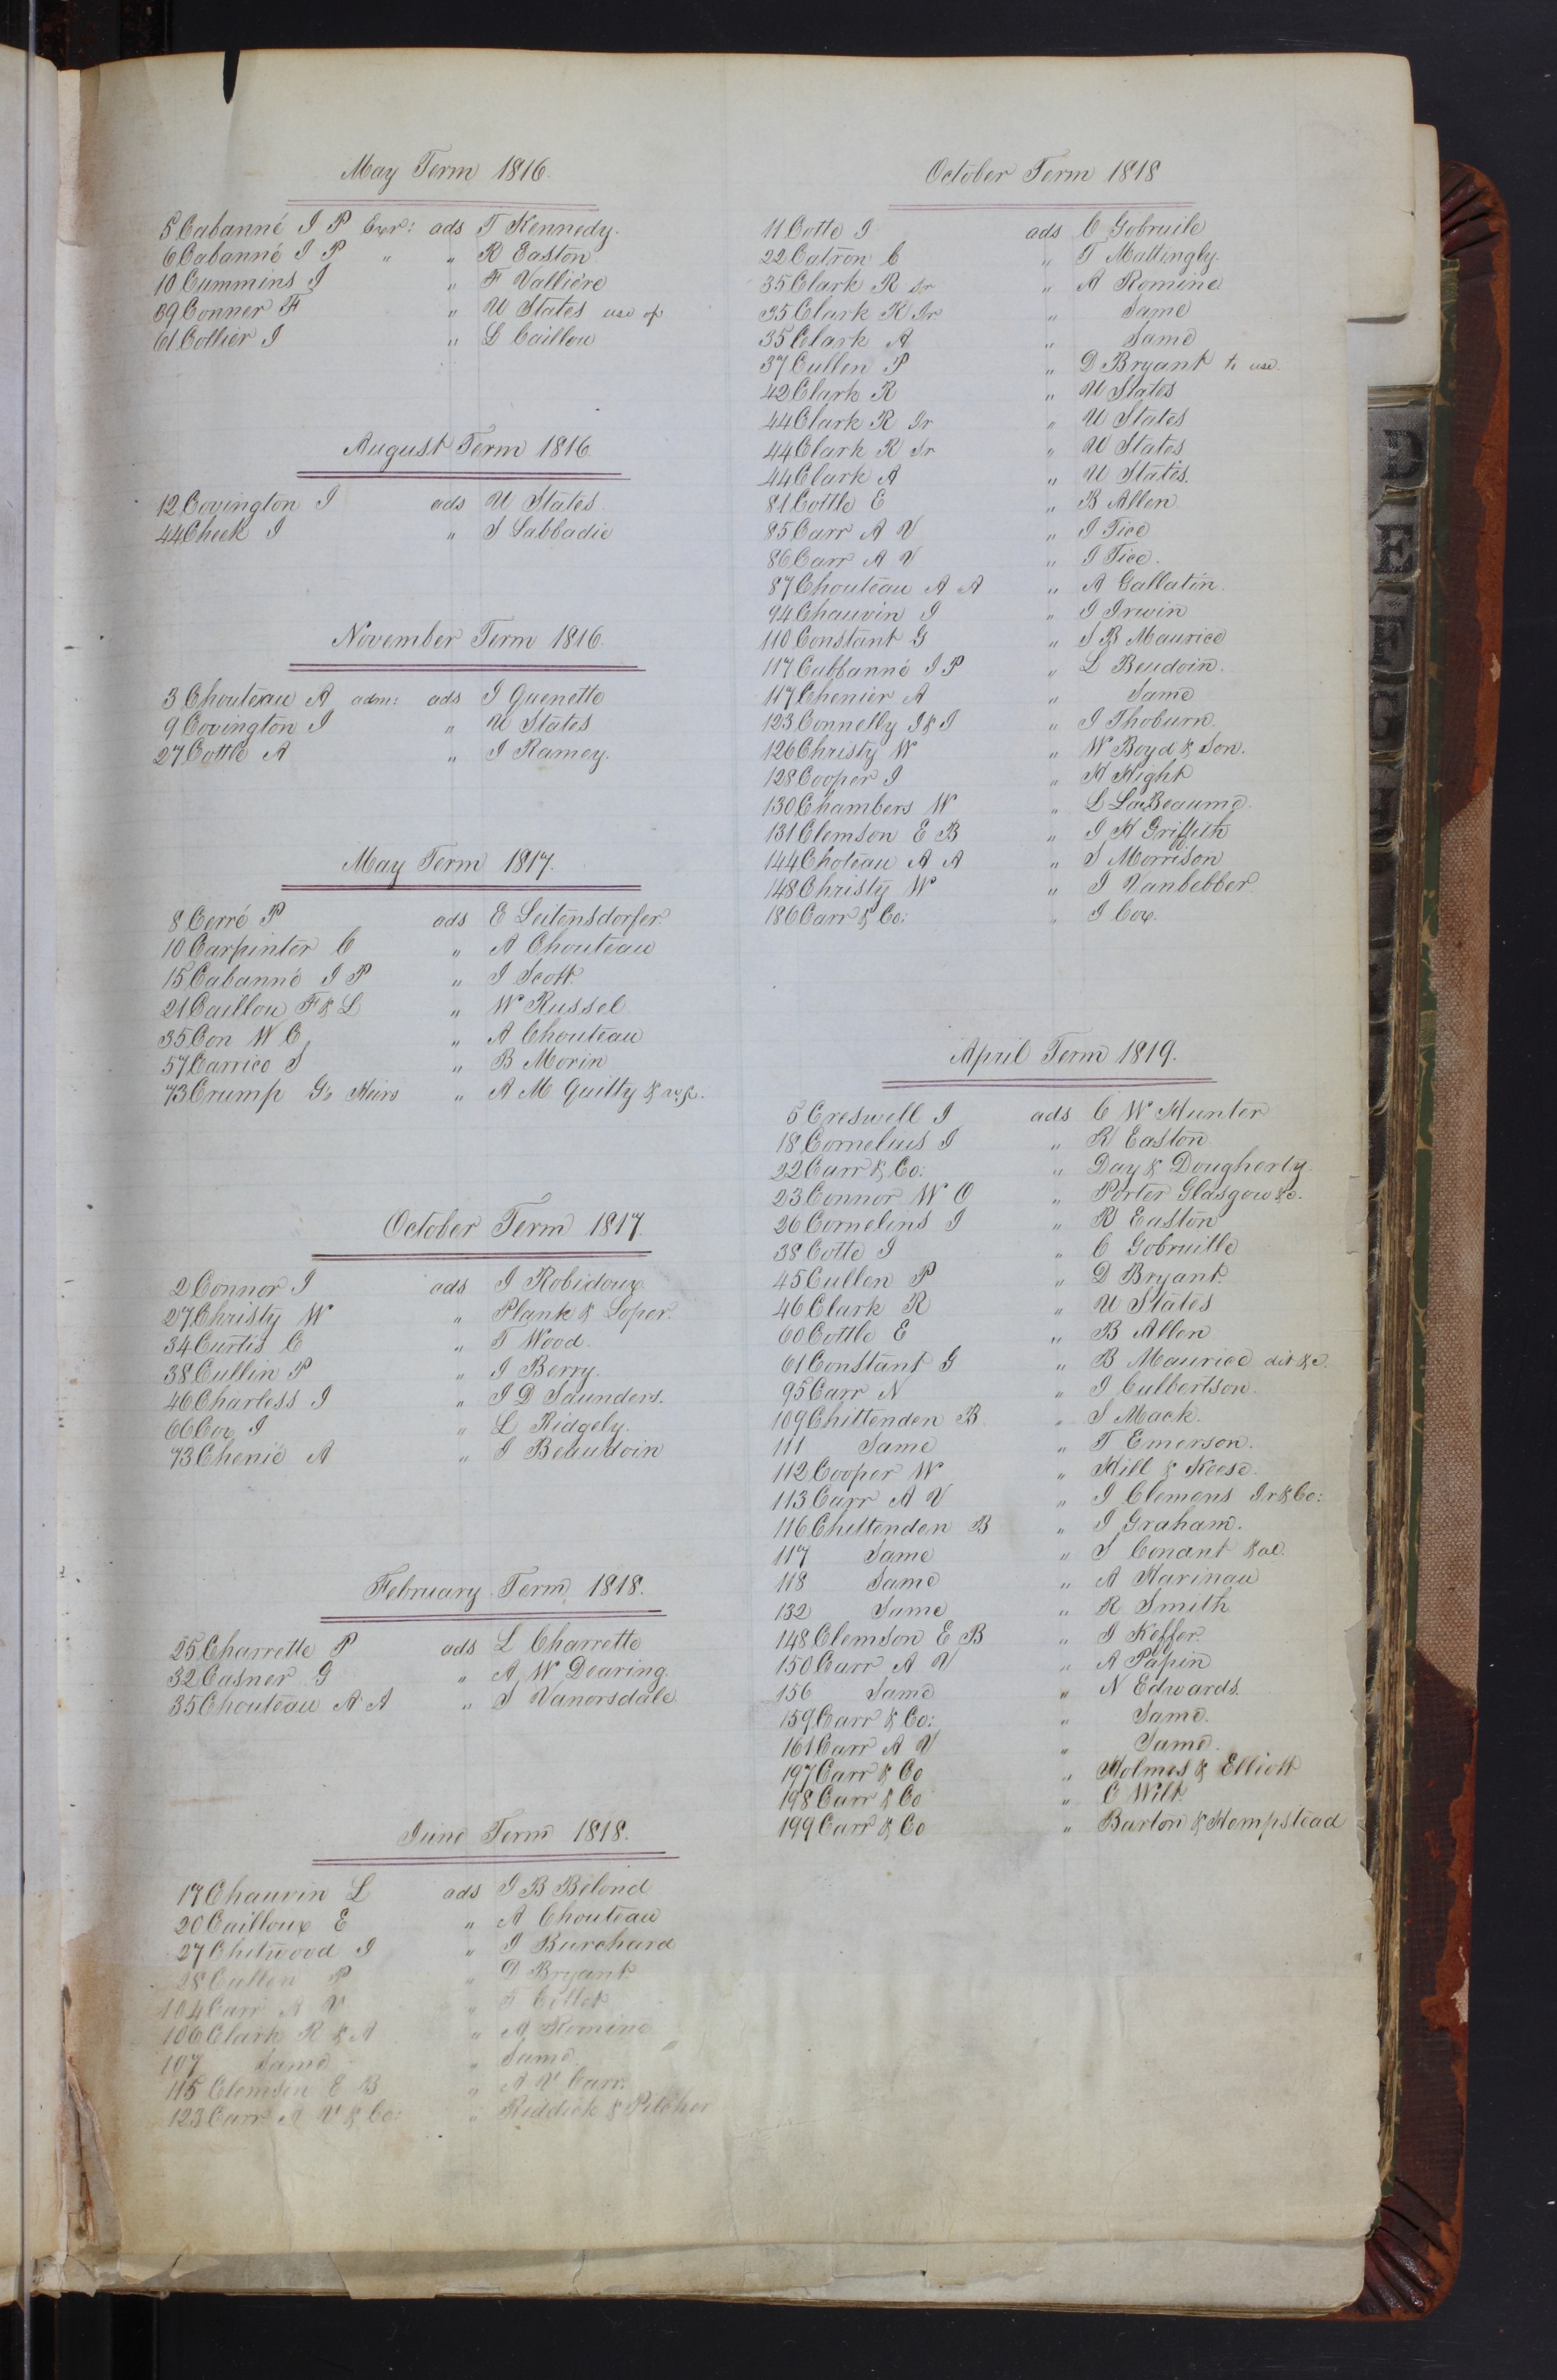 May Term 1816.
8 Cabanné J P Exr: ads T Kennedy.
6 Cabanné J P " " R Easton
10 Cummins J " F Vallière
39 Conner F " U States use of
61 Collier J " L Caillou
August Term 1816.
12 Covington J ads U States.
44 Cheek J " S Labbadie
November Term 1816.
3 Chouteau A adm: ads J Guenette
9 Covington J " U States
27 Cottle A " J Ramey.
May Term 1817.
8 Cerré P ads E Leitensdorfer.
10 Carpinter C " A Chouteau
15 Cabanné J P " J Scott.
21 Caillou F & L " W Russel
35 Con W C " A Chouteau
57 Carrico S " B Morin
73 Crump G's Heirs " A M Guitty &
October Term 1817.
2 Connor J ads J Robidoux.
27 Christy W " Plank & Loper.
34 Curtis C " T Wood.
38 Cullin P " J Berry.
46 Charless J " J D Saunders.
66 Cox J " L Ridgely.
73 Chenié A " J Beaudoin
February Term 1818.
25 Charrette P ads L Charrette
32 Casner G " A W Dearing.
35 Chouteau A A " S Vanorsdale.
June Term 1818.
17 Chauvin L ads J B Belond
20 Cailloux E " A Chouteau
27 Chitwood J " J Burchard
28 Cullen P " D Bryant
104 Carr A V " T
106 Clark R & A " A Romine
107 Same " Same.
115 Clemson E B " A V Carr.
123 Carr A V & Co: " Riddick & Pilcher
October Term 1818
11 Cotte J ads C Gobruile
22 Catron C " T Mattingly.
35 Clark R Sr " A Romine
35 Clark R Jr " Same
35 Clark A " Same
37 Cullen P " D Bryant to use.
42 Clark R " U States
44 Clark R Jr " U States
44 Clark R Sr " U States
44 Clark A " U States.
81 Cottle E " B Allen
85 Carr A V " J Tice
86 Carr A V " J Tice.
87 Chouteau A A " A Gallatin.
94 Chauvin J " J Irwin
110 Constant G " S B Maurice
117 Cabbanné J P " L Beudoin.
117 Chenier A " Same
123 Connelly J & J " J Thoburn.
126 Christy W " W Boyd & Son.
128 Cooper J " H Hight
130 Chambers W " L LaBeaume.
131 Clemson E B " J H Griffith
144 Choteau A A " S Morrison
148 Christy W " J Vanbebber.
186 Carr & Co: " J Cox.
April Term 1819.
5 Creswell J ads C W Hunter
18 Cornelius J " R Easton
22 Carr & Co: " Day & Dougherty.
23 Connor W O " Porter Glasgow &c.
26 Cornelius J " R Easton
38 Cotte J " C Gobruille
45 Cullen P " D Bryant.
46 Clark R " U States
60 Cottle E " B Allen
61 Constant G " B Maurice dit &c.
95 Carr N " J Culbertson.
109 Chittenden B " S Mack.
111 Same " T Emerson.
112 Cooper W " Hill & Keese.
113 Carr A V " J Clemens Jr & Co:
116 Chittenden B " J Graham.
117 Same " S Conant & al.
118 Same " A Harinau
132 Same " R Smith
148 Clemson E B " J Keffer.
150 Carr A V " A Papin
156 Same " N Edwards.
159 Carr & Co: " Same.
161 Carr A V " Same.
197 Carr & Co " Holmes & Elliott
198 Carr & Co " C Wilt.
199 Carr & Co " Barton & Hempstead
D
E
F
G
H